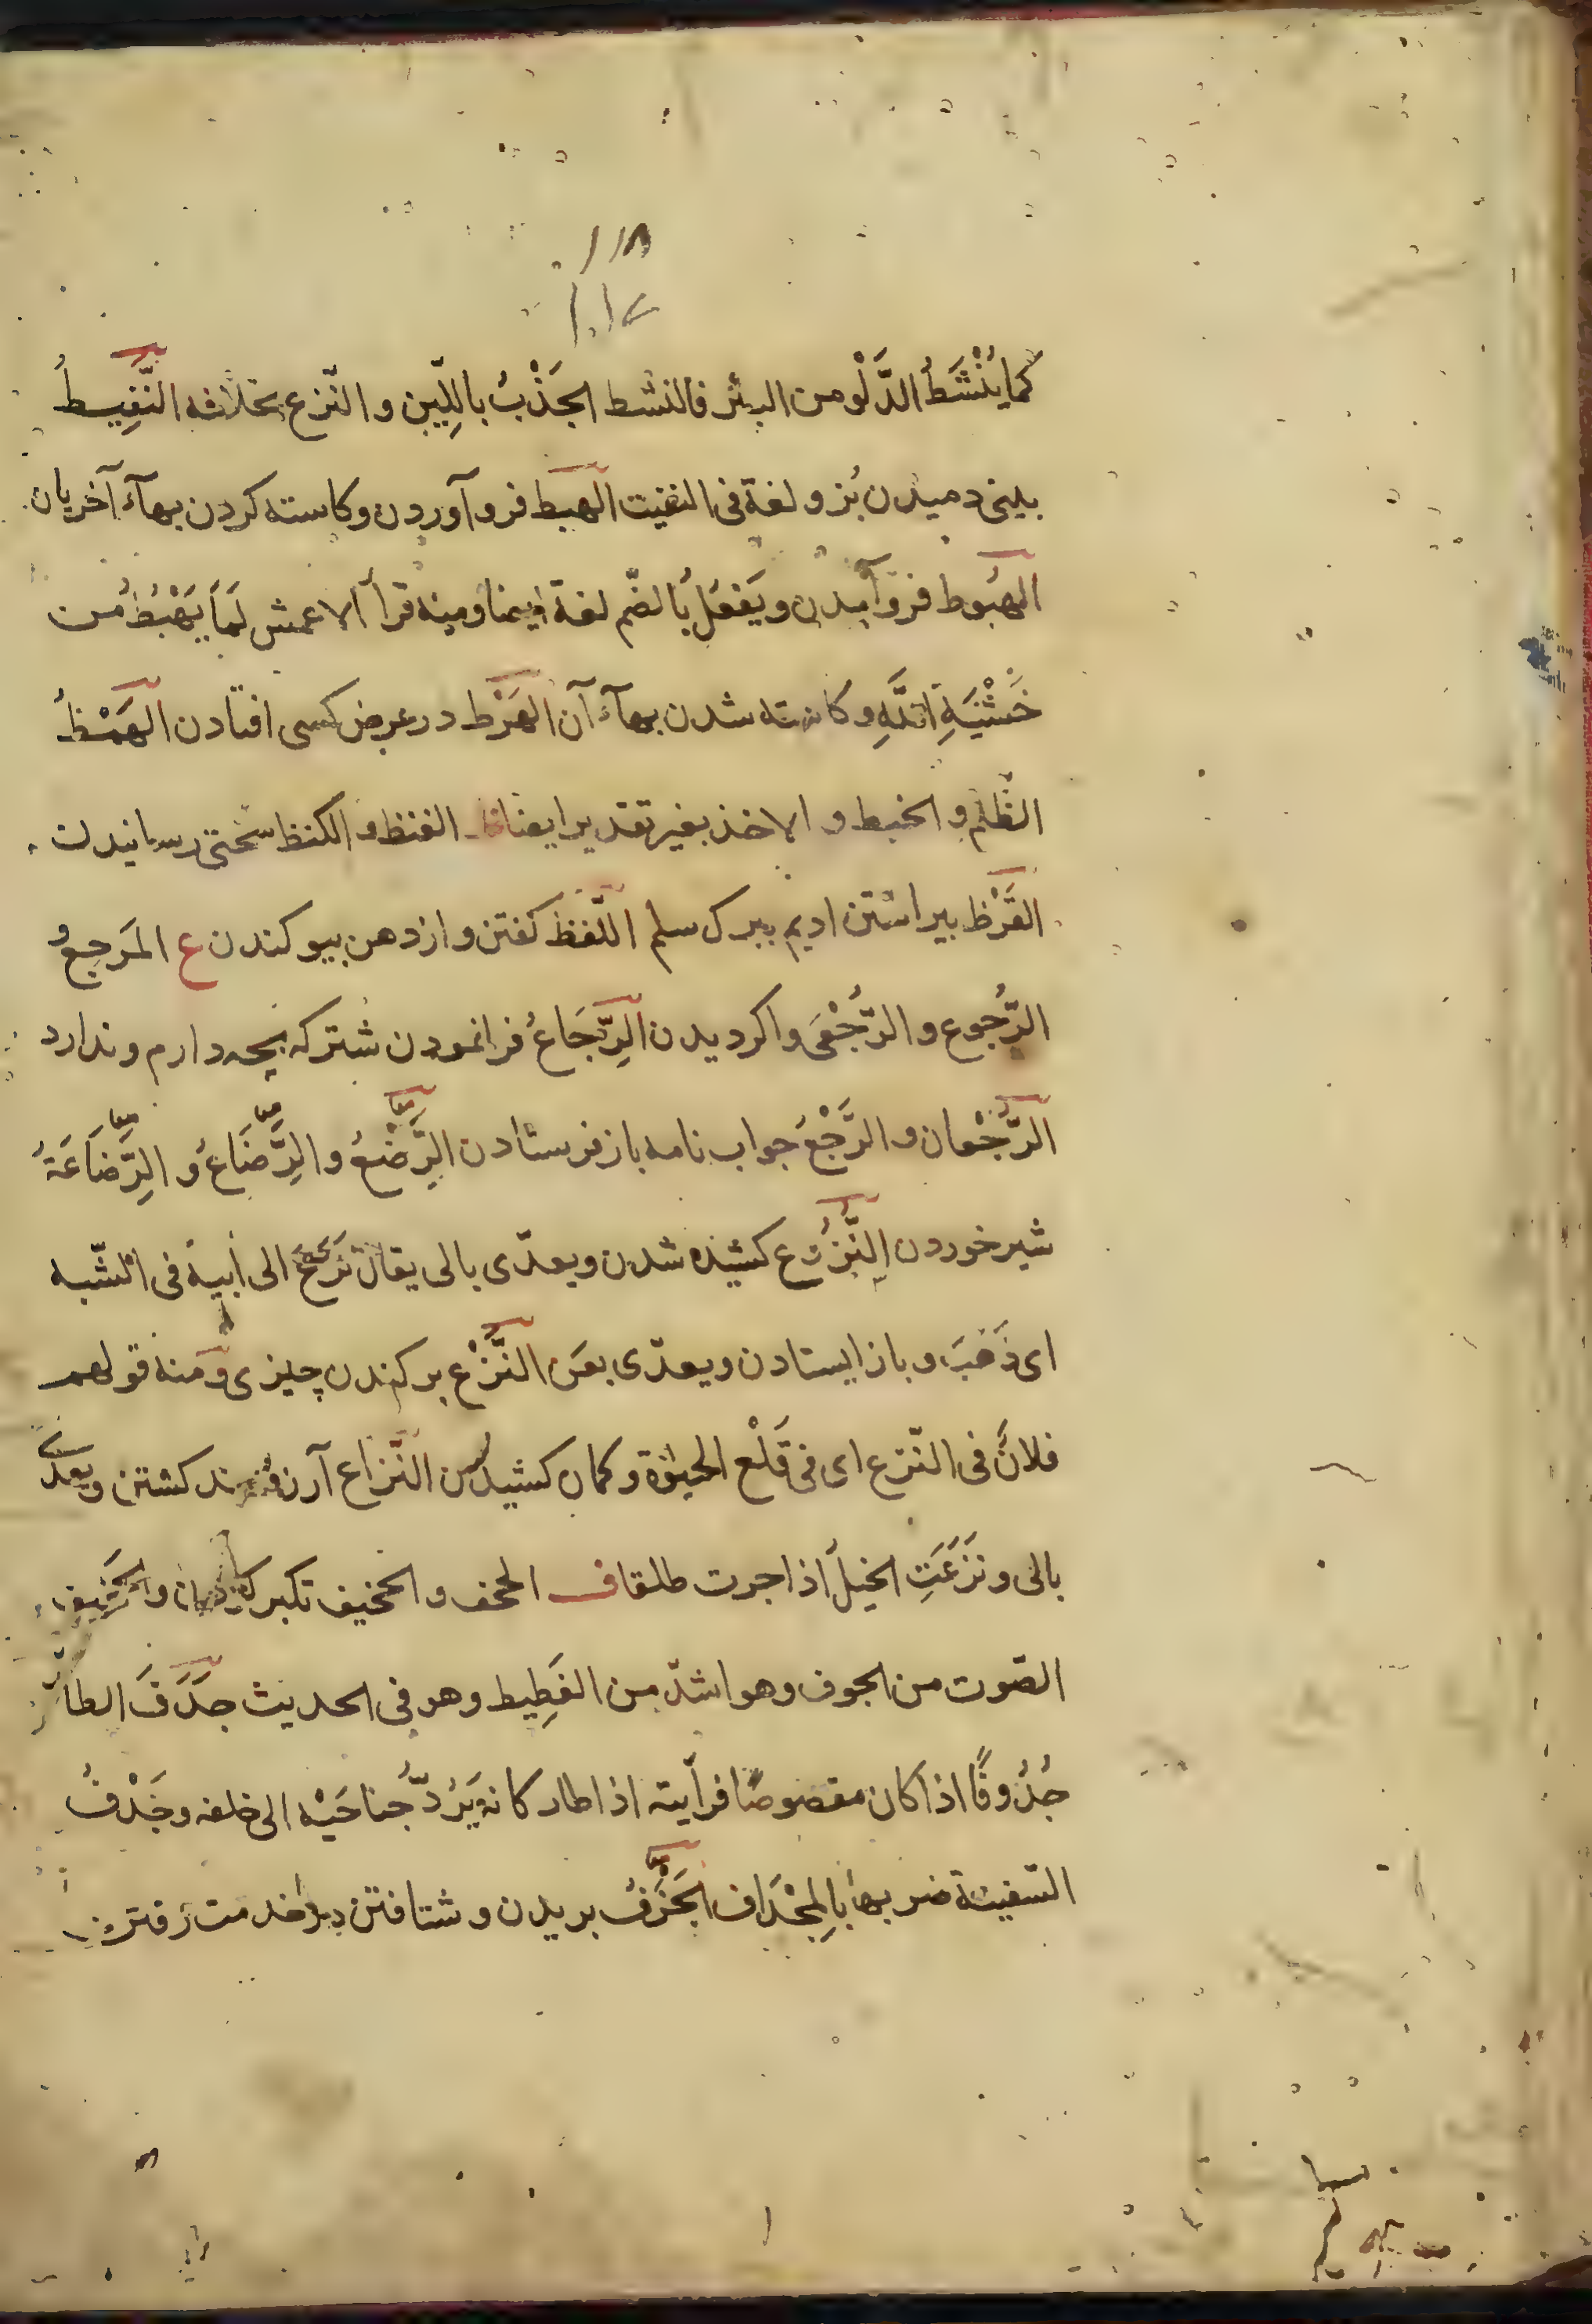 كما يُنْشَطُ الدَّلْو من البئر فالنشط الجَذْبُ باللِّين و النّزع بخلافه النَّفِيطُ
بینی دمیدن بُز و لغة فی النفیت الهبط فرو آوردن و کاسته کردن بهآء آخریان
الهُبوط فرو آمدن و یَفعُلُ بالضّم لغة ایضا و منه قرأ الاعمش لَمَا یَهْبُطُ من
خَشْيَةِ اللَّهِ و کاسته شدن بهآء آن الهَرْط در عرض کسی افتادن الهَمْطُ
الظُلم و الخبط و الاخذ بغیر تقدیر ایضا ظ الغنظ و الکنظ سختی رسانیدن
القَرْظ بیراستن ادیم ببرک سلم اللّفظ کفتن و از دهن بیوکندن ع المَرجِعُ و
الرُّجوع و الرُّجْعَى واکردیدن الرِّجَاعُ فرا نمودن شتر که بچه دارم و ندارد
الرُّجْعان و الرَّجْعُ جواب نامه باز فرستادن الرَّضْعُ و الرَّضَاعُ و الرَّضَاعَةُ
شیر خوردن النِّزُوع کشیده شدن و یعدّی بالی یقال نزع الی ابیه فی الشّبه
ای ذَهَبَ و باز ایستادن و یعدّی بعَن النَّزْع برکندن چیزی و منه قولهم
فلانٌ فی النّزع ای فی قَلْع الحیوٰة و کمان کشیدن النِّزاع آرزومند کشتن و یعدّی
بالی و نَزَعَتِ الخیلُ اذا جرت طلقا ف الجخف و الجخیف تکبر کردن و الجَخیف
الصّوت من الجوف و هو اشدّ من الغَطِیط و هو فی الحدیث جَدَفَ الطائر
جُدُوفًا اذا کان مقصوصًا فرأیته اذا طار کانه یَرُدُّ جناحَیْه الی خلفه و جَدْفُ
السّفینة ضربها بالمِجْدَاف الجَذْفُ بریدن و شتافتن در رفتن